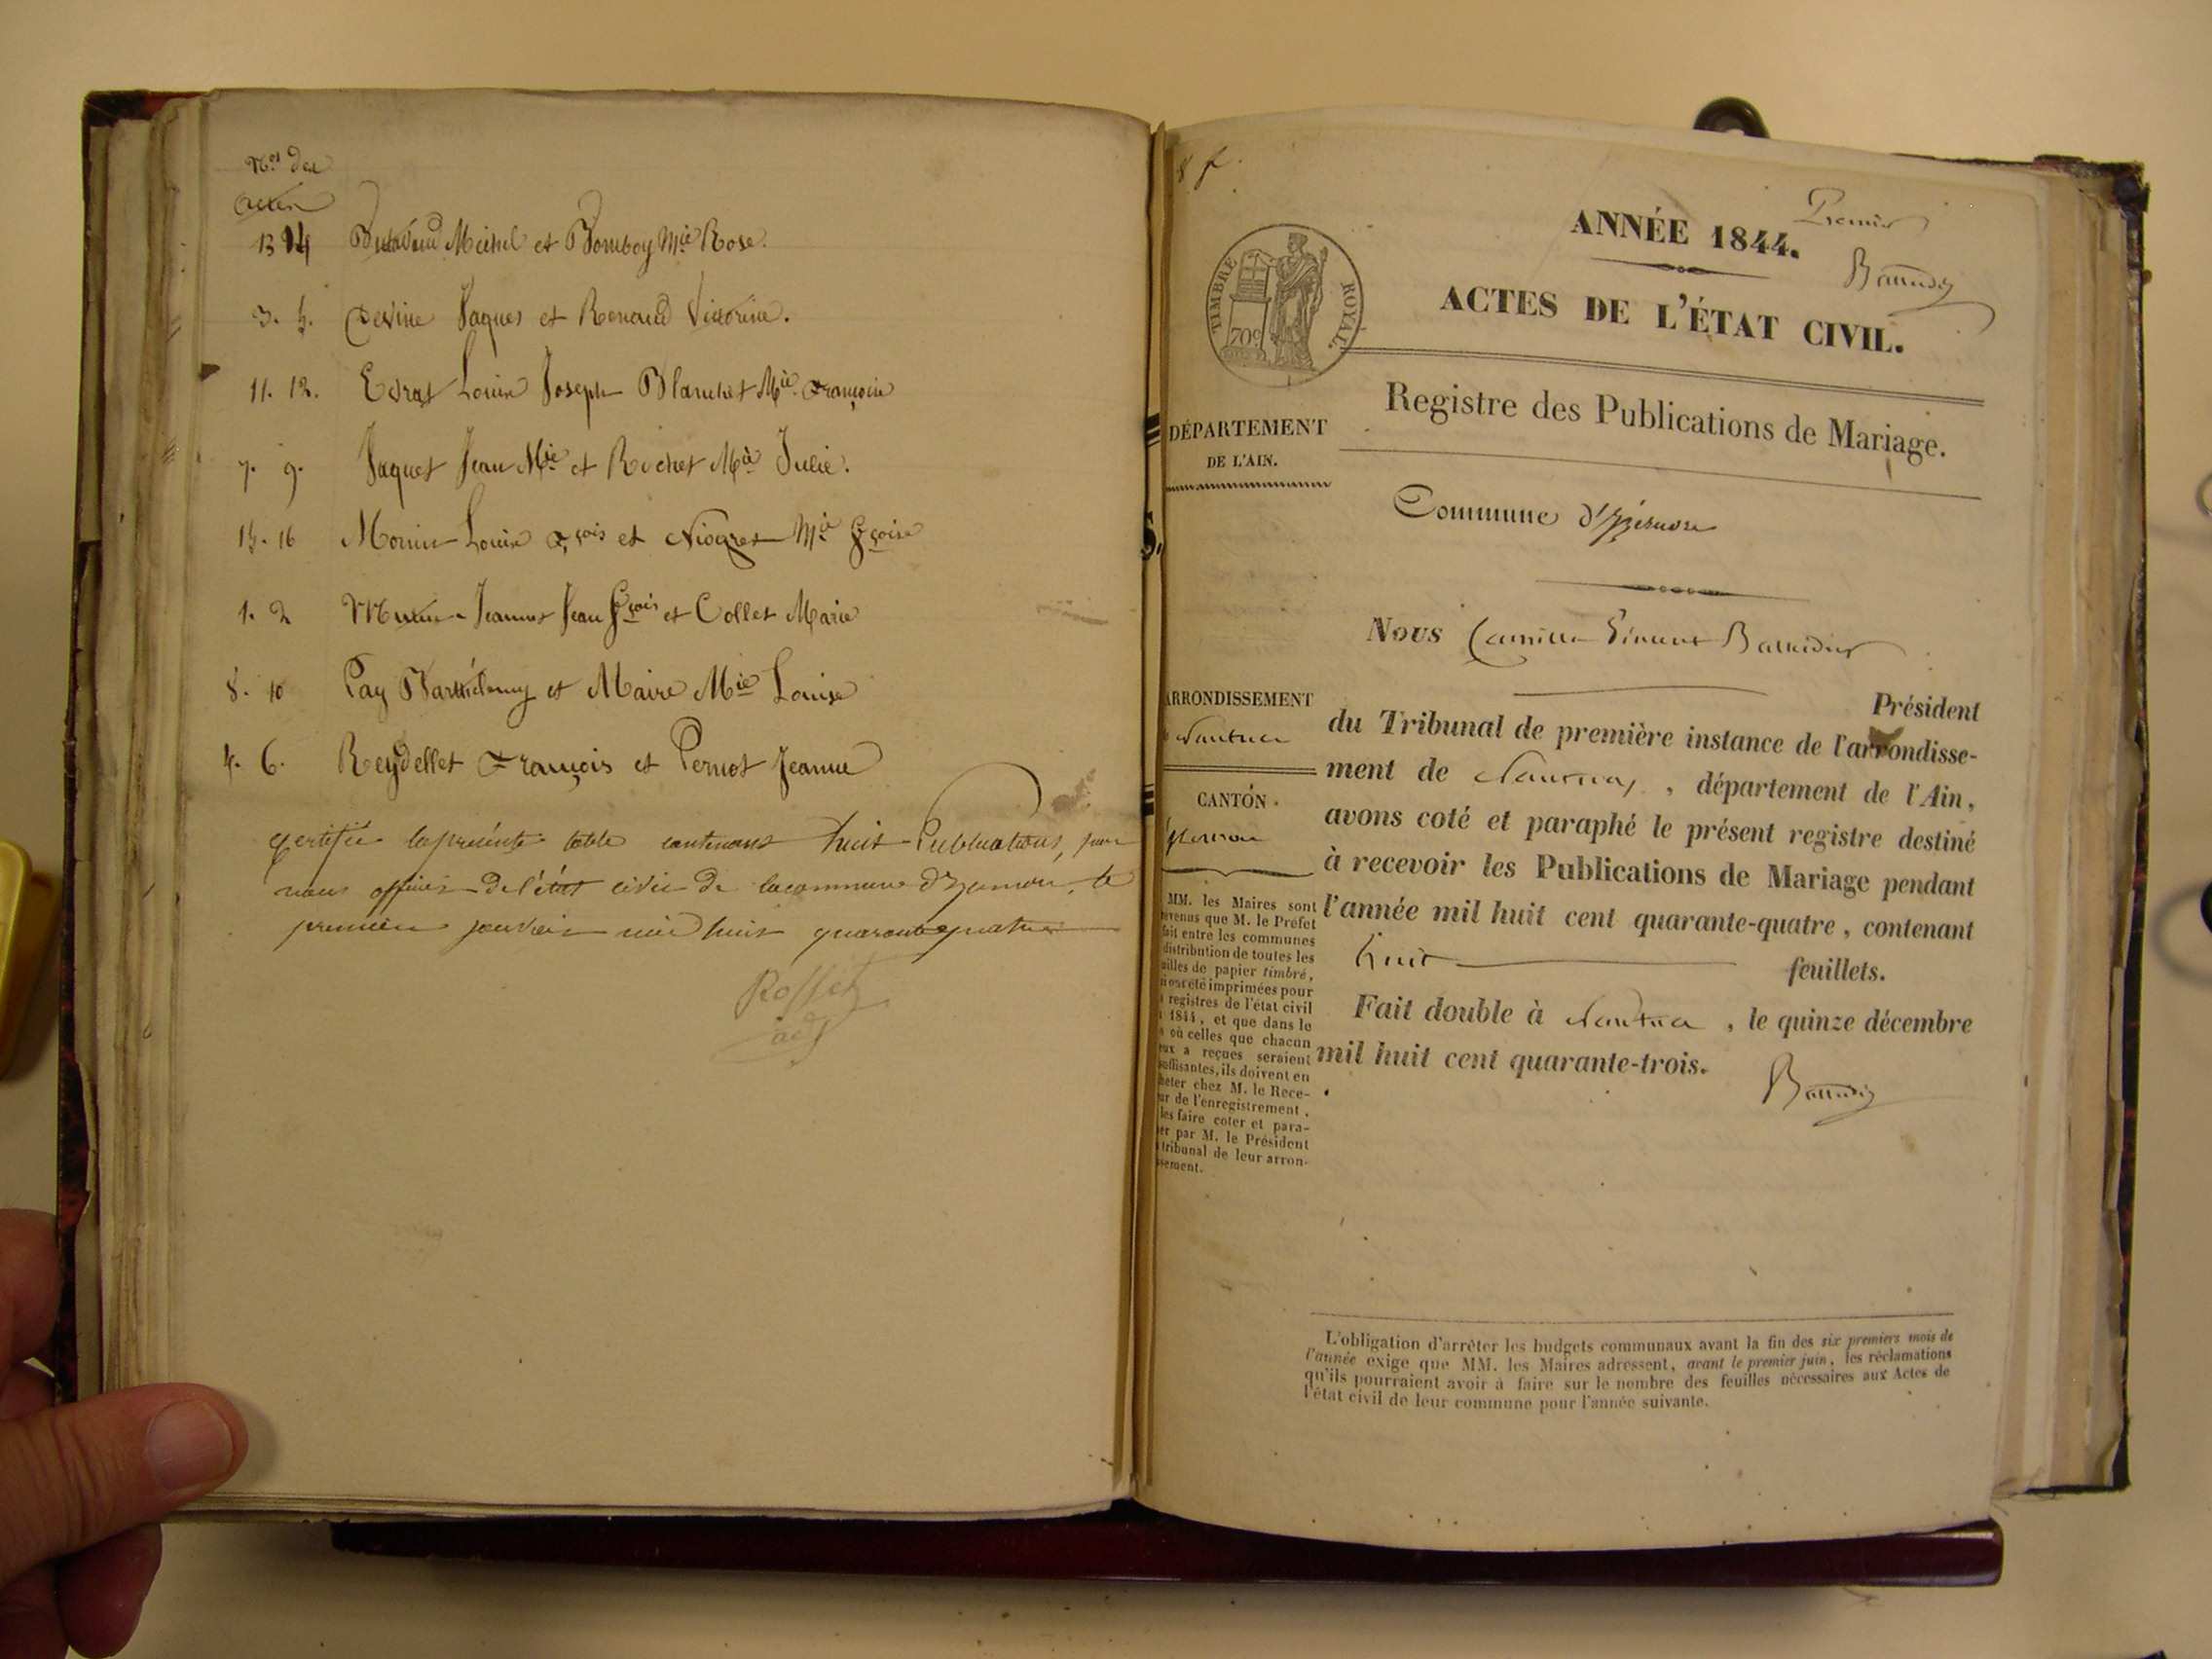 Nos des
actes
13 14 Michel et Bomboy Mie Rose.
3. 5. Devine Jaques et Renaud Victorine.
11. 12. Evrat Louis Joseph Blanchet Mie Françoise
7. 9. Jaquet Jean Mie et Rochet Mie Julie.
15. 16 Monin Louis Fçois et Niogret Mie Fçoise
1. 2 Jean Fçois et Collet Marie
8. 10 Pay Barthélemy et Maire Mie Louise
4. 6. Reydellet François et Pernot Jeanne
Certifié la présente table contenant huit Publications, par
nous officier de l'état civil de la commune d'Izernore, le
premier janvier mil huit quarante quatre
Rosset
adj
8 f.
Premier
ANNÉE 1844.
ACTES DE L'ÉTAT CIVIL.
TIMBRE ROYAL.
70c
Registre des Publications de Mariage.
DÉPARTEMENT
DE L'AIN.
Commune d'Izernore
Nous Camille Vincent
Président
ARRONDISSEMENT
Nantua
du Tribunal de première instance de l'arrondisse-
ment de Nantua, département de l'Ain,
CANTON
Izernore
avons coté et paraphé le présent registre destiné
à recevoir les Publications de Mariage pendant
l'année mil huit cent quarante-quatre, contenant
huit feuillets.
Fait double à Nantua, le quinze décembre
mil huit cent quarante-trois.
MM. les Maires sont
que M. le Préfet
fait entre les communes
distribution de toutes les
de papier timbré,
été imprimées pour
registres de l'état civil
1844, et que dans le
où celles que chacun
a reçues seraient
ils doivent en
chez M. le Rece-
de l'enregistrement,
les faire coter et para-
par M. le Président
tribunal de leur arron-
L'obligation d'arrêter les budgets communaux avant la fin des six premiers mois de
l'année exige que MM. les Maires adressent, avant le premier juin, les réclamations
qu'ils pourraient avoir à faire sur le nombre des feuilles nécessaires aux Actes de
l'état civil de leur commune pour l'année suivante.